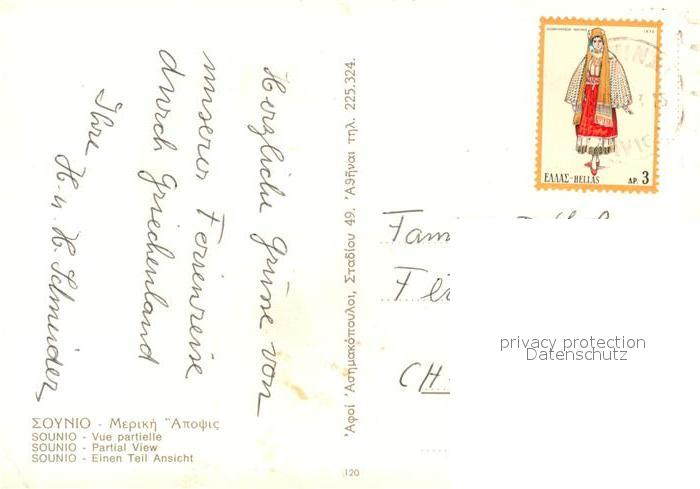 Herzliche Grüsse von
unserer Ferienreise
durch Griechenland
Ihre
H. u. H. Schmider
ΣΟΥΝΙΟ - Μερική Ἄποψις
SOUNIO - Vue partielle
SOUNIO - Partial View
SOUNIO - Einen Teil Ansicht
Ἀφοί Ἀσημακόπουλοι, Σταδίου 49. Ἀθῆναι τηλ. 225.324.
120
1972
ΕΛΛΑΣ-HELLAS ΔΡ. 3
Fam
CH
privacy protection
Datenschutz